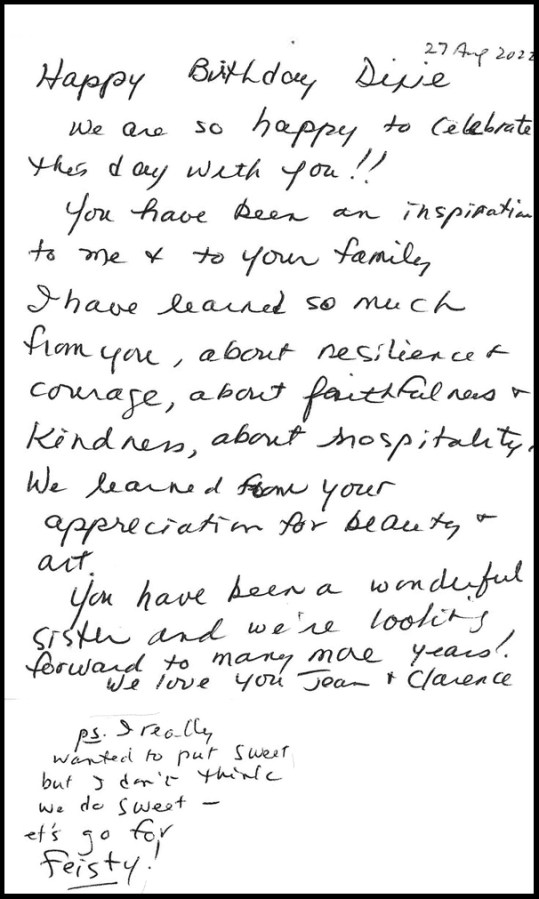 27 Aug 2022
Happy Birthday Dixie
We are so happy to celebrate
this day with you!!
You have been an inspiration
to me & to your family
I have learned so much
from you, about resilience &
courage, about faithfulness &
kindness, about hospitality.
We learned from your
appreciation for beauty &
art.
You have been a wonderful
sister and we're looking
forward to many more years!
We love you Jean & Clarence
ps. I really
wanted to put sweet
but I don't think
we do sweet –
et's go for
Feisty!